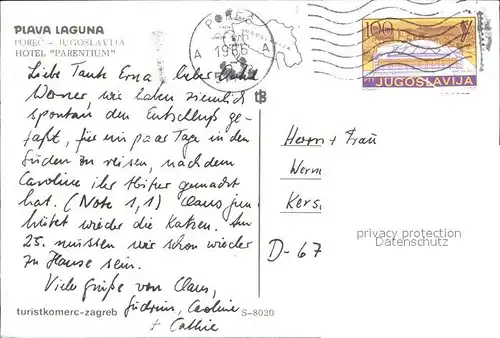 PLAVA LAGUNA
POREČ - JUGOSLAVIJA
HOTEL "PARENTIUM"
POREČ
A 1986 A
100
PTT JUGOSLAVIJA
Liebe Tante Erna, lieber
Werner, wir haben ziemlich
spontan den Entschluß ge-
faßt, für ein paar Tage in den
Süden zu reisen, nachdem
Caroline ihr Abitur gemacht
hat. (Note 1,1) Claus jun.
hütet wieder die Katzen. Am
25. müssen wir schon wieder
zu Hause sein.
Viele Grüße von Claus,
Gudrun, Caroline
+ Cathie
Herrn + Frau
Wern
Kers
D-67
privacy protection
Datenschutz
turistkomerc-zagreb
S-8020